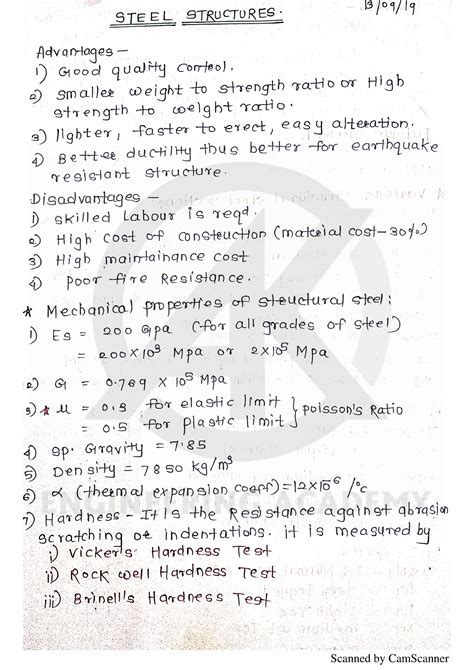 13/09/19
STEEL STRUCTURES.
Advantages -
1) Good quality control.
2) smaller weight to strength ratio or High
strength to weight ratio.
3) lighter, faster to erect, easy alteration.
4) Better ductility thus better for earthquake
resistant structure.
Disadvantages -
1) skilled Labour is reqd.
2) High cost of construction (material cost-30%)
3) High maintainance cost
4) poor fire Resistance.
* Mechanical properties of structural steel:
1) Es = 200 Gpa (for all grades of steel)
= 200×10³ Mpa or 2×10⁵ Mpa
2) G = 0.769 × 10⁵ Mpa
3)* μ = 0.3 for elastic limit } poisson's Ratio
= 0.5 for plastic limit
4) sp. Gravity = 7.85
5) Density = 7850 kg/m³
6) α (thermal expansion coeff) = 12×10⁻⁶ /°c
ENGINEERING ACADEMY
7) Hardness - It Is the Resistance against abrasion
scratching or indentations. it is measured by
i) Vicker's Hardness Test
ii) Rock well Hardness Test
iii) Brinell's Hardness Test
Scanned by CamScanner